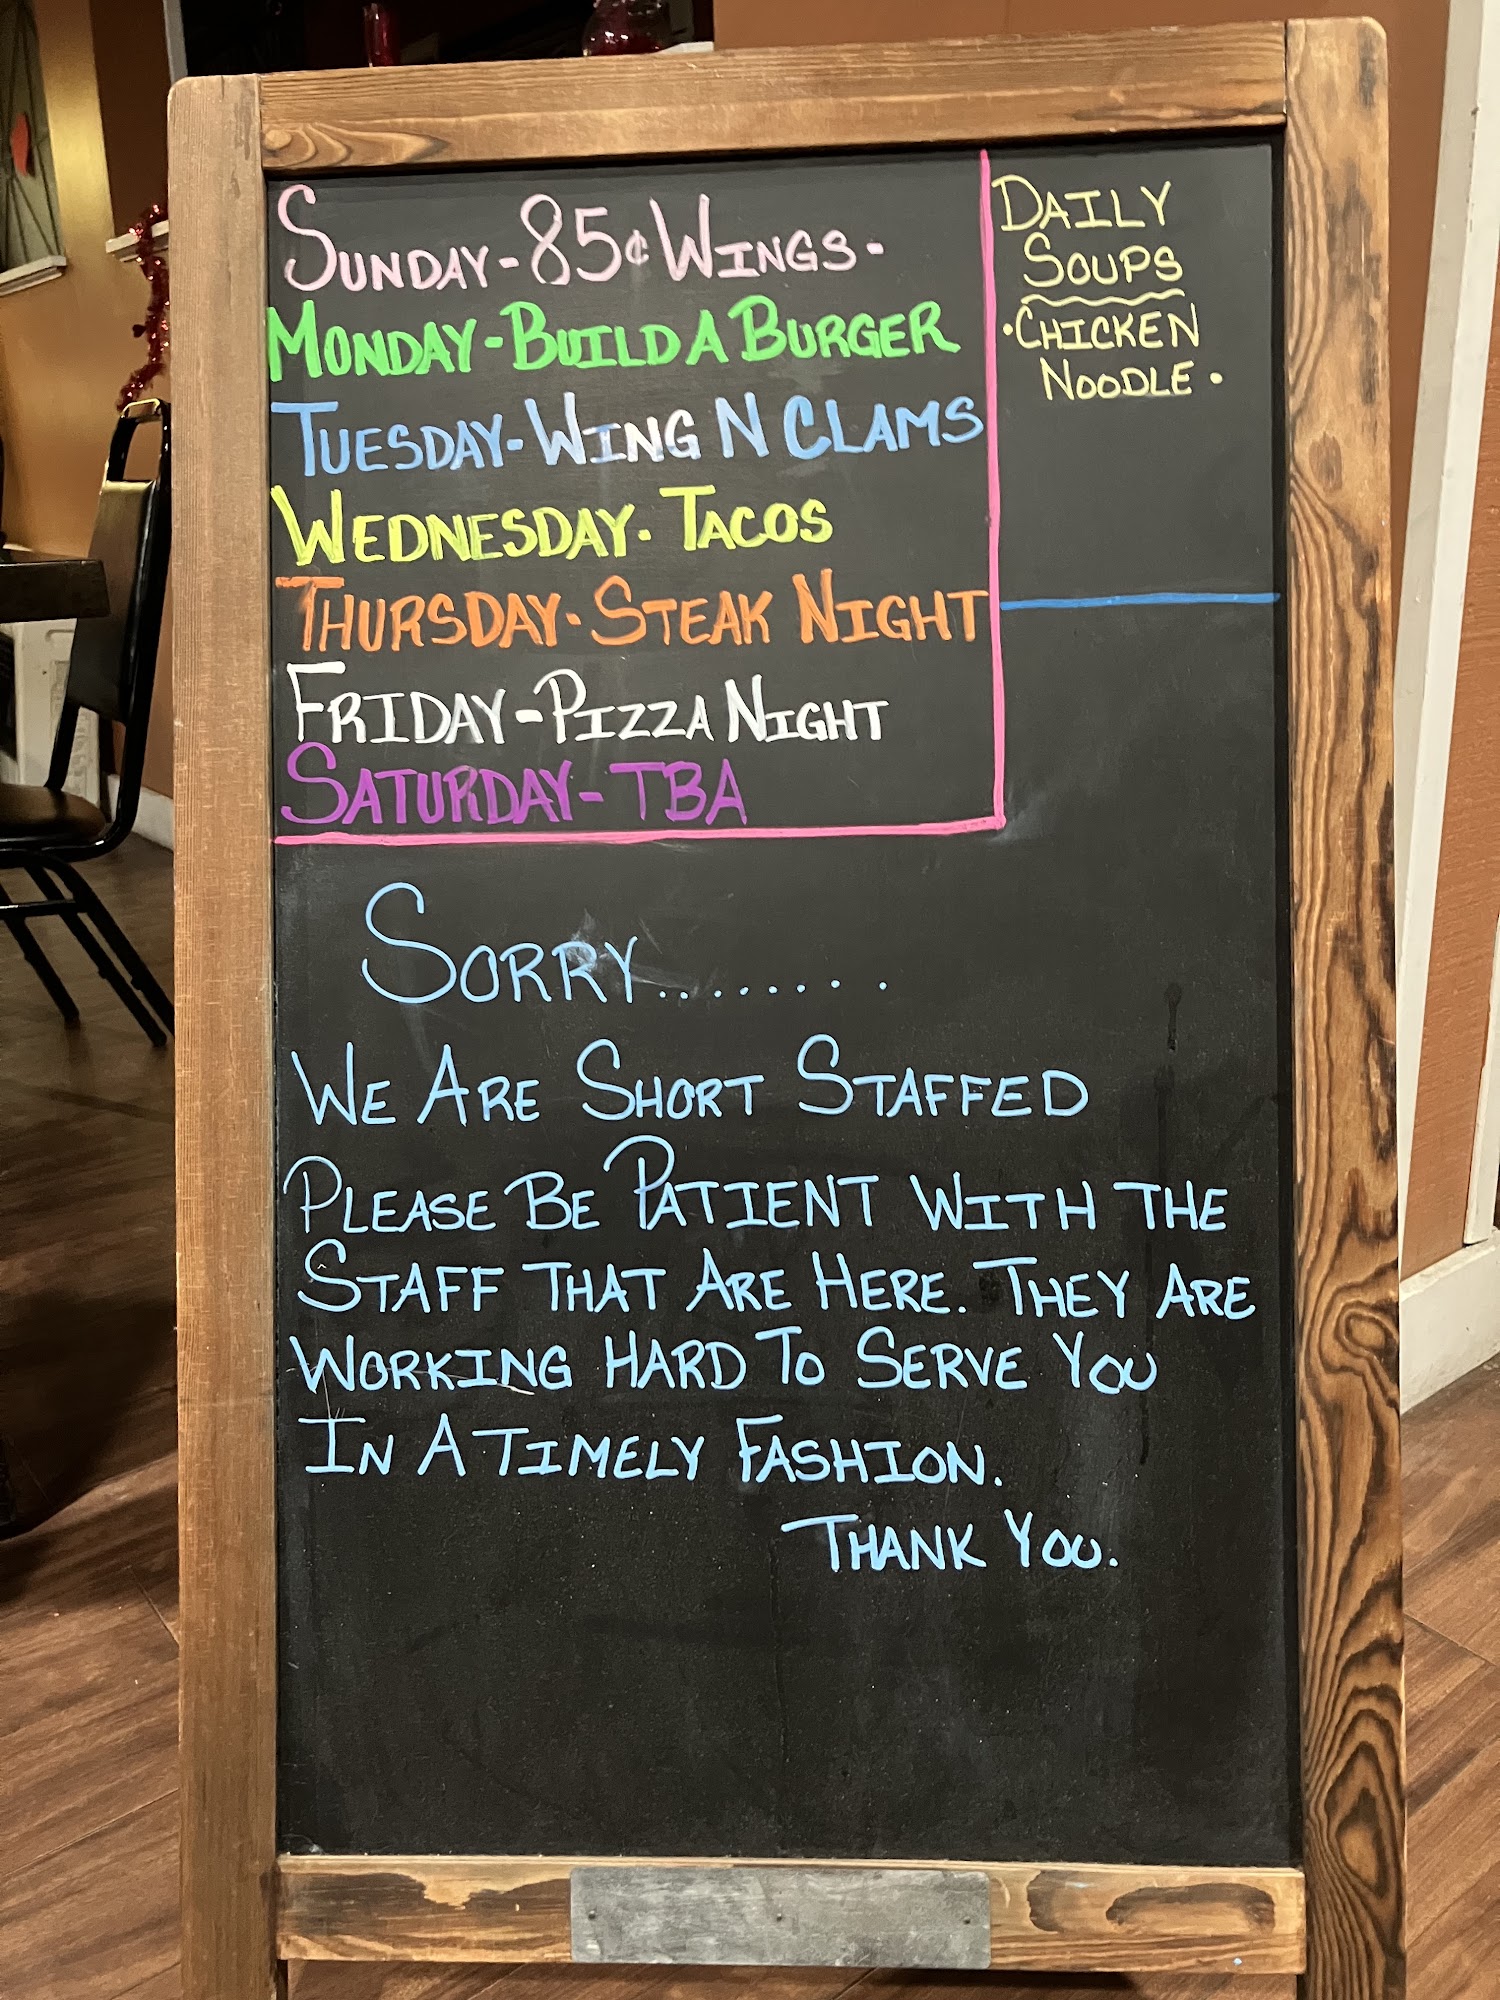 SUNDAY - 85¢ WINGS -
MONDAY - BUILD A BURGER
TUESDAY - WING N CLAMS
WEDNESDAY - TACOS
THURSDAY - STEAK NIGHT
FRIDAY - PIZZA NIGHT
SATURDAY - TBA
DAILY
SOUPS
• CHICKEN
NOODLE •
SORRY.........
WE ARE SHORT STAFFED
PLEASE BE PATIENT WITH THE
STAFF THAT ARE HERE. THEY ARE
WORKING HARD TO SERVE YOU
IN A TIMELY FASHION.
THANK YOU.